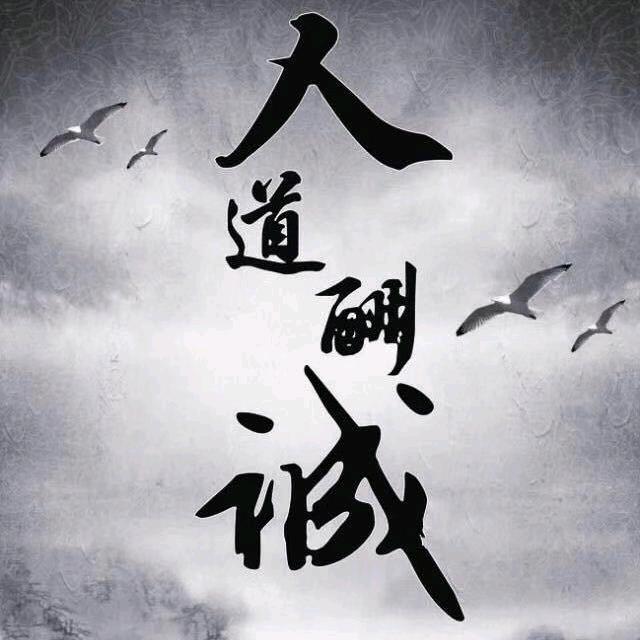 人道酬诚